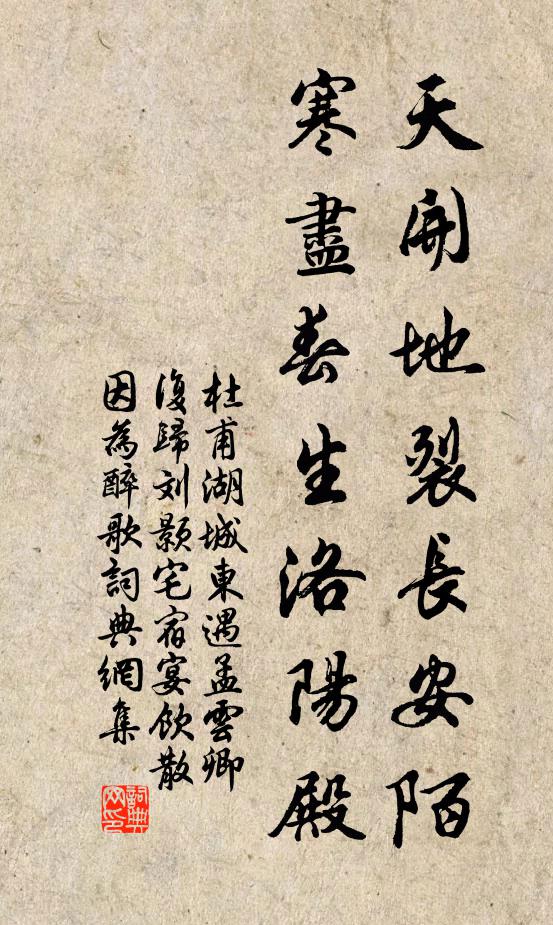 天開地裂長安陌
寒盡春生洛陽殿
杜甫湖城東遇孟雲卿
復歸刘顥宅宿宴飲散
因為醉歌詞典網集
詞典網印